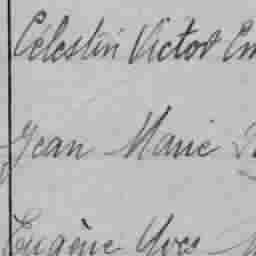 Célestin Victor Em
Jean Marie
Eugène Yves